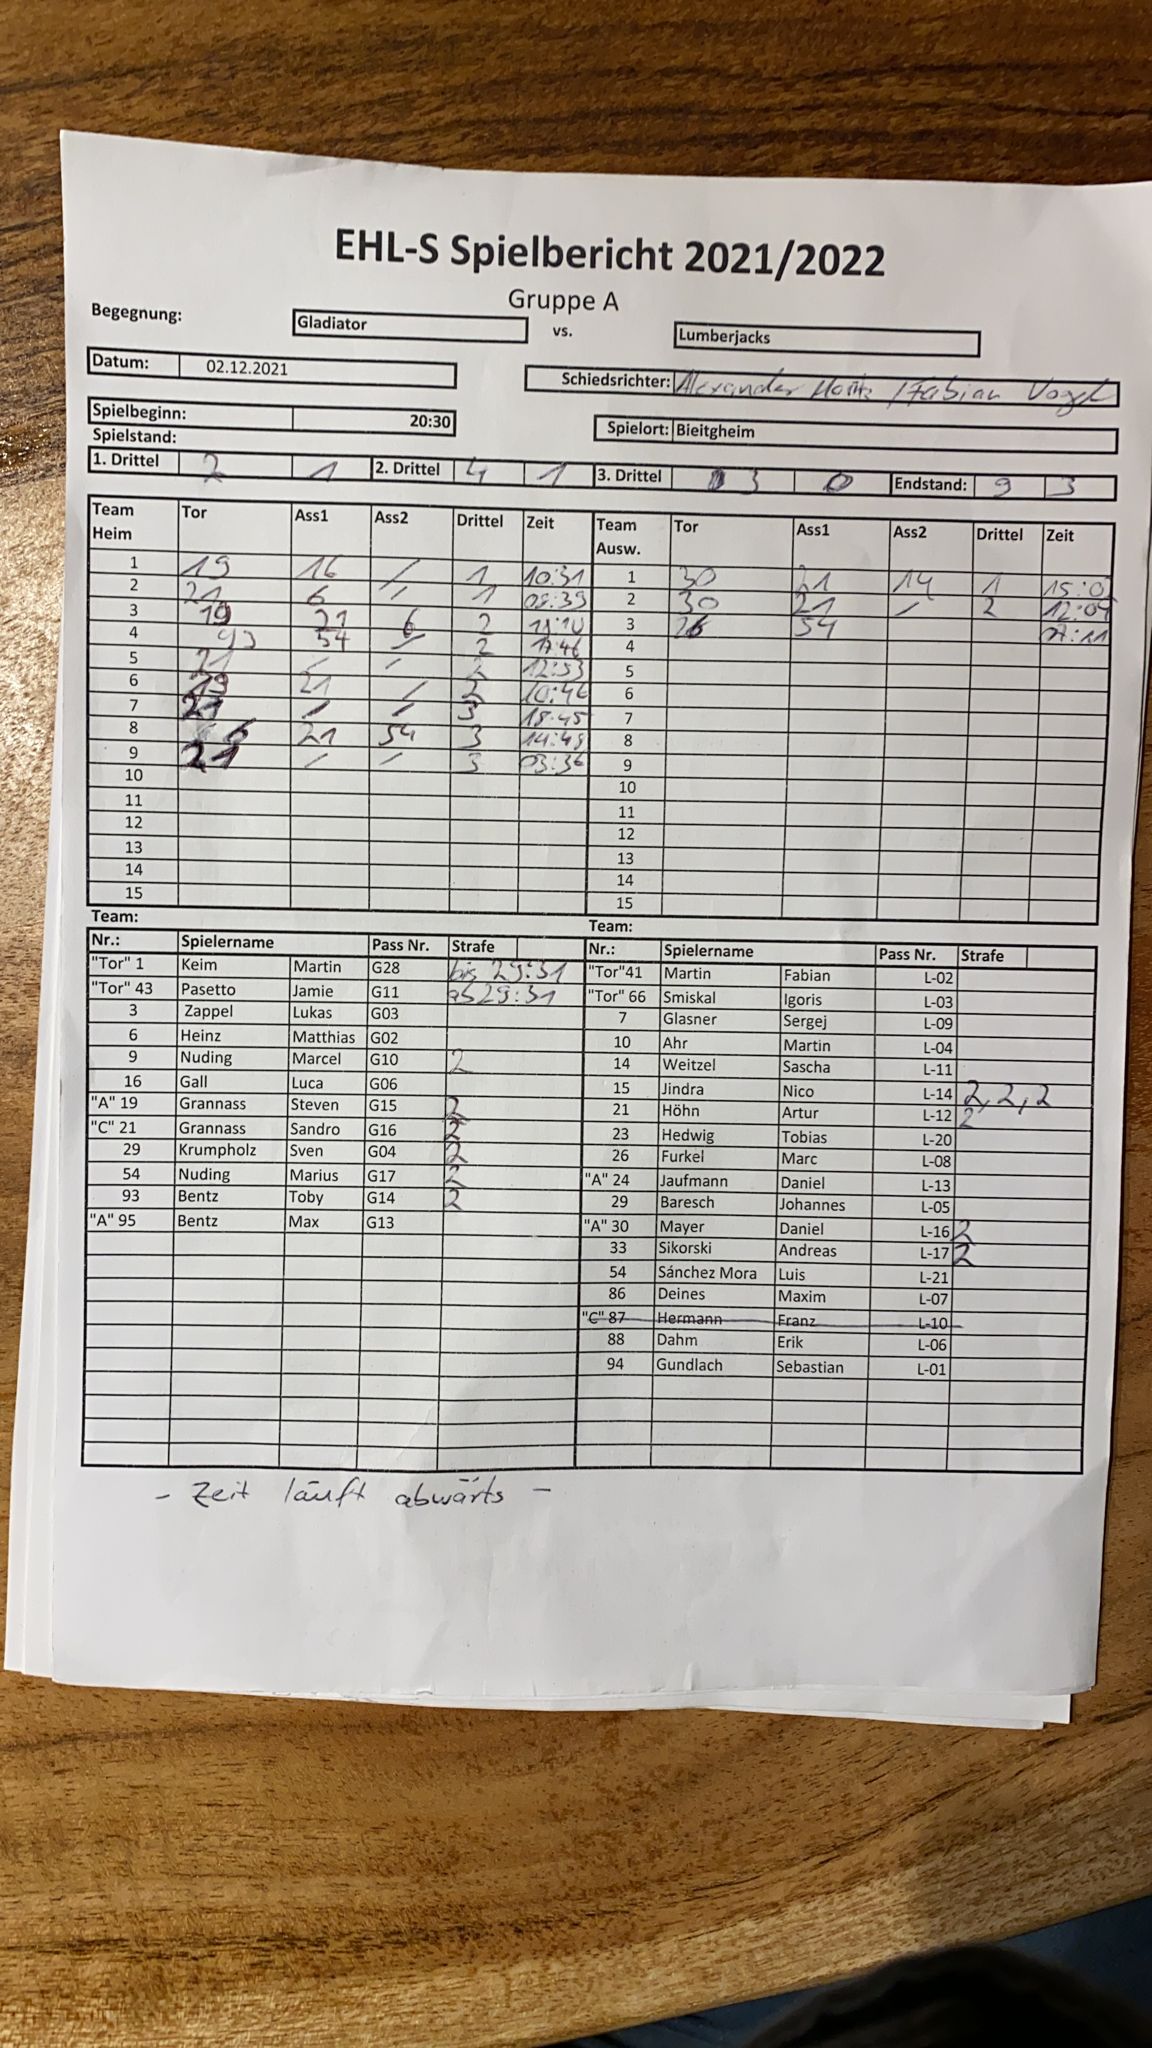 EHL-S Spielbericht 2021/2022
Gruppe A
Begegnung: Gladiator vs. Lumberjacks
Datum: 02.12.2021 Schiedsrichter: Alexander / Fabian Vogel
Spielbeginn: 20:30 Spielort: Bieitgheim
Spielstand:
1. Drittel 2 1 2. Drittel 4 1 3. Drittel 3 0 Endstand: 9 3
Team Heim Tor Ass1 Ass2 Drittel Zeit Team Ausw. Tor Ass1 Ass2 Drittel Zeit
1 19 16 / 1 10:31 1 30 21 14 1 15:02
2 21 6 / 1 09:39 2 30 21 / 2 12:09
3 19 21 6 2 3 26 54 07:11
4 93 54 / 2 17:46 4
5 21 / / 2 12:53 5
6 19 21 / 2 10:46 6
7 21 / / 3 18:45 7
8 6 21 54 3 14:49 8
9 21 / / 3 03:36 9
10 10
11 11
12 12
13 13
14 14
15 15
Team: Team:
Nr.: Spielername Pass Nr. Strafe Nr.: Spielername Pass Nr. Strafe
"Tor" 1 Keim Martin G28 bis 29:31 "Tor"41 Martin Fabian L-02
"Tor" 43 Pasetto Jamie G11 ab 29:31 "Tor" 66 Smiskal Igoris L-03
3 Zappel Lukas G03 7 Glasner Sergej L-09
6 Heinz Matthias G02 10 Ahr Martin L-04
9 Nuding Marcel G10 2 14 Weitzel Sascha L-11
16 Gall Luca G06 15 Jindra Nico L-14 2, 2, 2
"A" 19 Grannass Steven G15 2 21 Höhn Artur L-12 2
"C" 21 Grannass Sandro G16 2 23 Hedwig Tobias L-20
29 Krumpholz Sven G04 2 26 Furkel Marc L-08
54 Nuding Marius G17 2 "A" 24 Jaufmann Daniel L-13
93 Bentz Toby G14 2 29 Baresch Johannes L-05
"A" 95 Bentz Max G13 "A" 30 Mayer Daniel L-16 2
33 Sikorski Andreas L-17 2
54 Sánchez Mora Luis L-21
86 Deines Maxim L-07
"C" 87 Hermann Franz L-10
88 Dahm Erik L-06
94 Gundlach Sebastian L-01
- Zeit läuft abwärts -